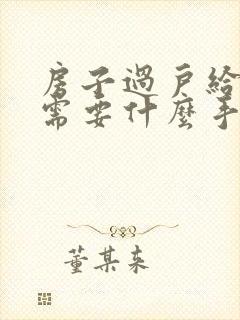 房子過戶給
需要什麼手
董某来